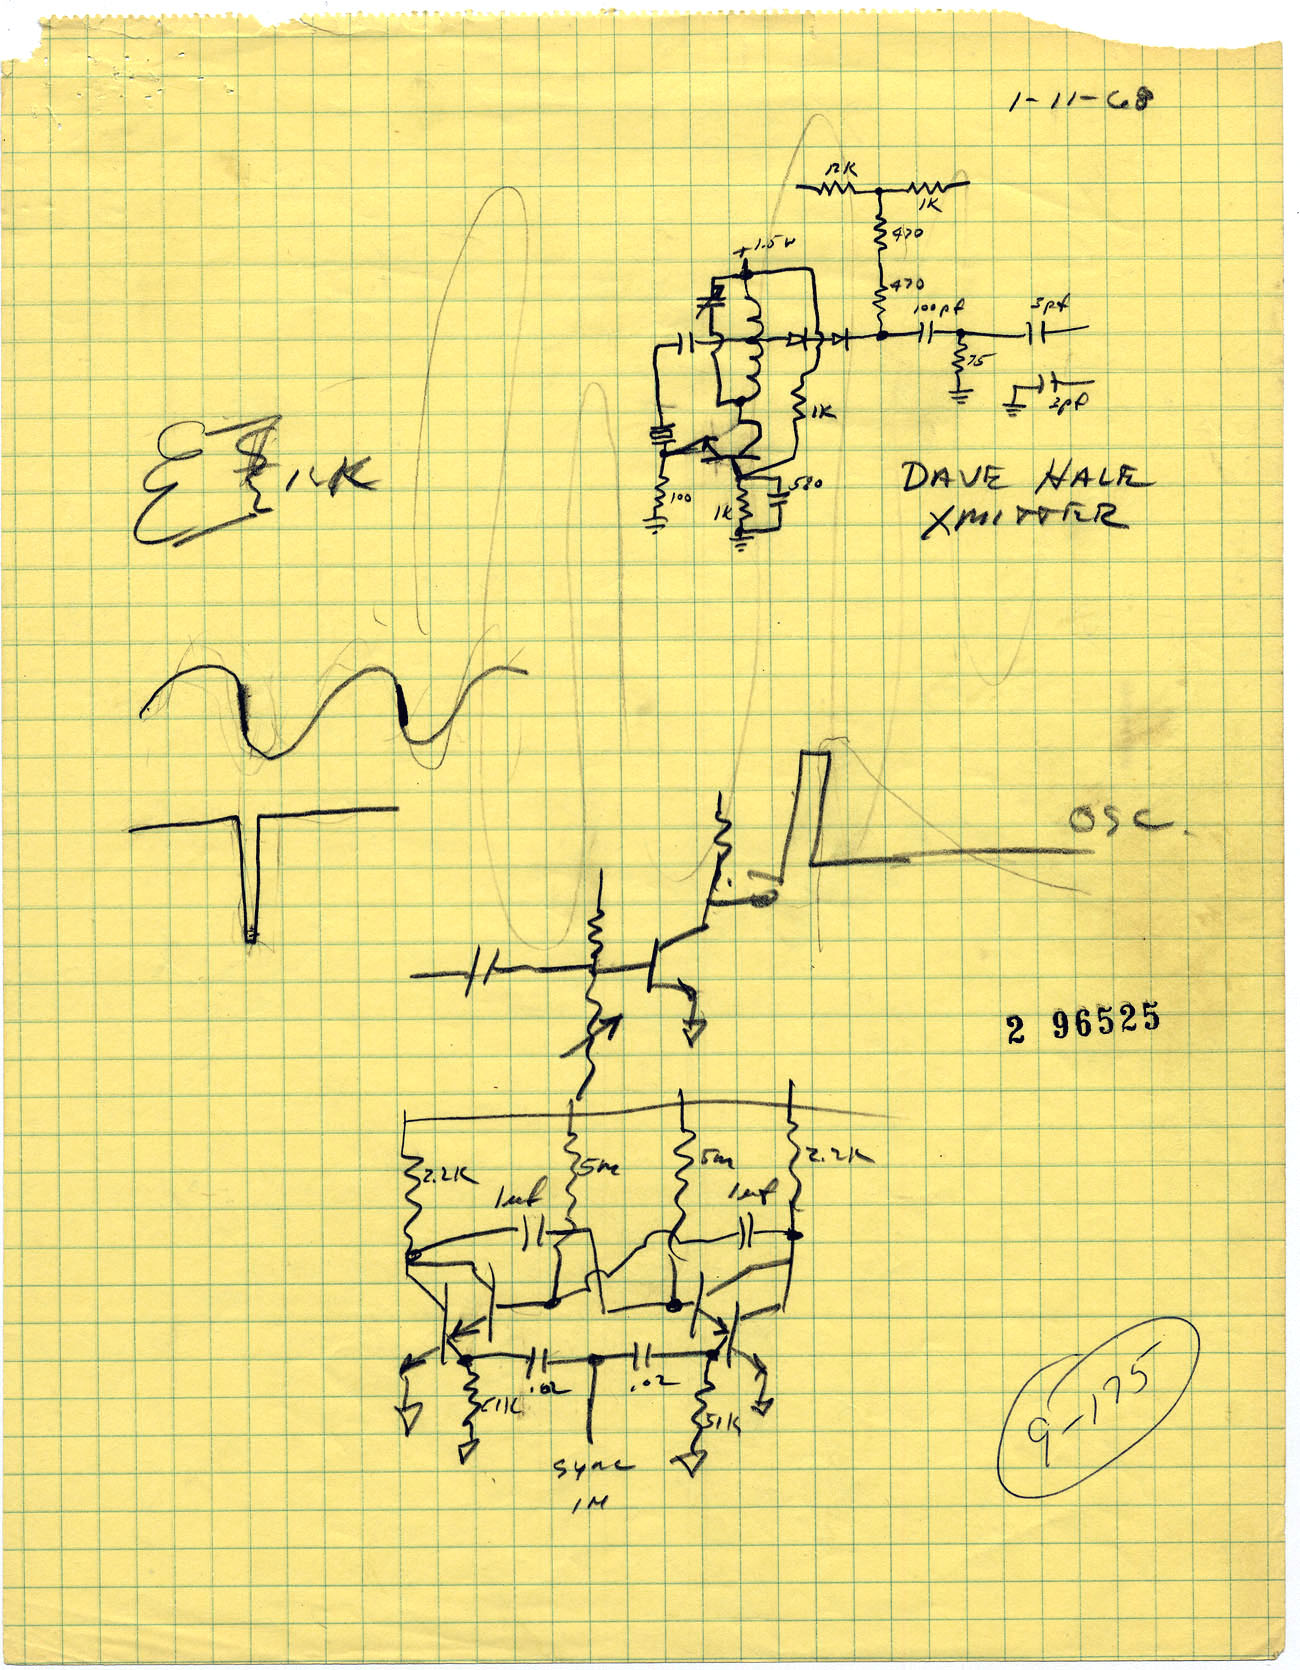 1-11-68
12K
1K
470
+1.5V
470
100pf
5pf
75
2pf
1K
100
1K
580
12K
DAVE HALE
XMITTER
OSC.
2 96525
2.2K
5m
5m
2.2K
1uf
1uf
.02
.02
51K
51K
SYNC
IN
9-175